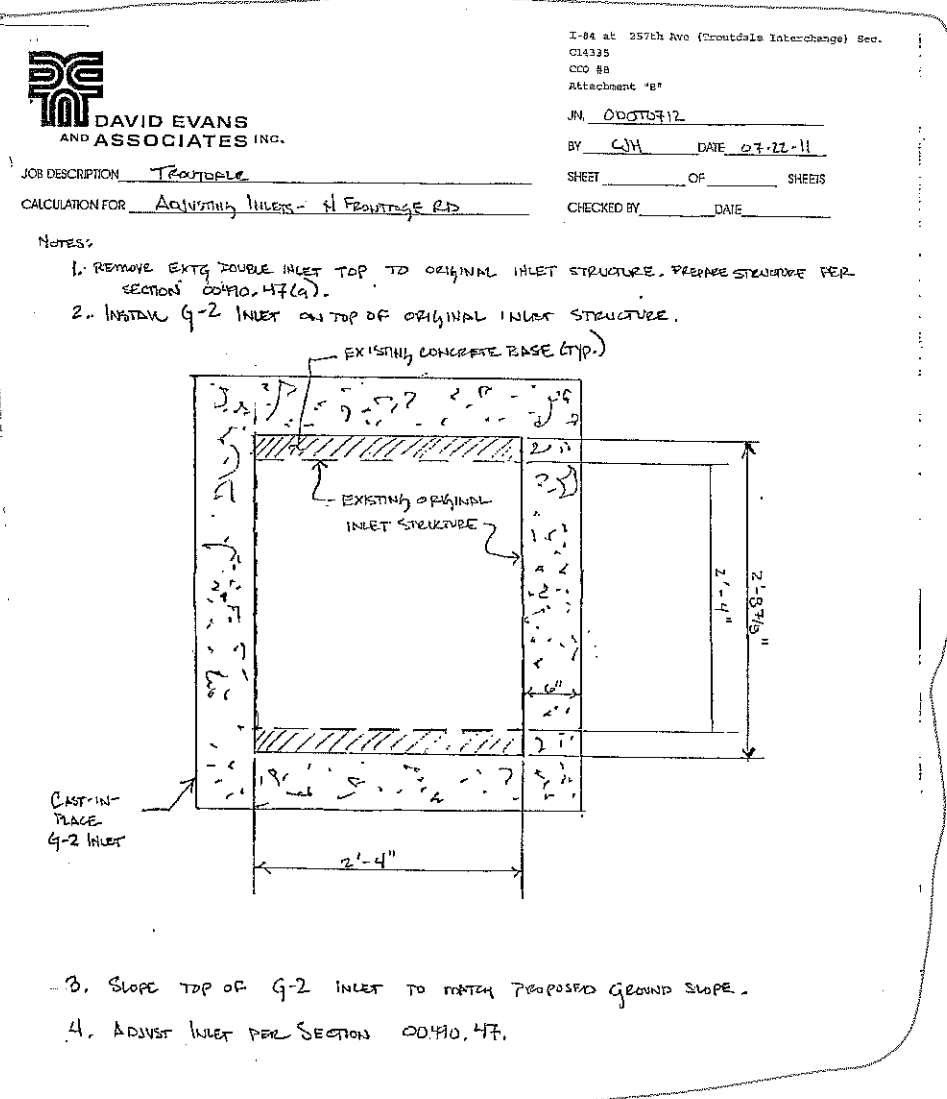 I-84 at 257th Ave (Troutdale Interchange) Sec.
C14335
CCO #8
Attachment "B"
DAVID EVANS
AND ASSOCIATES INC.
JN. ODOT0712
BY CJH DATE 07-22-11
JOB DESCRIPTION TROUTDALE
SHEET OF SHEETS
CALCULATION FOR ADJUSTING INLETS - N FRONTAGE RD
CHECKED BY DATE
NOTES:
1. REMOVE EXTG DOUBLE INLET TOP TO ORIGINAL INLET STRUCTURE. PREPARE STRUCTURE PER
SECTION 00490.47(a).
2. INSTALL G-2 INLET ON TOP OF ORIGINAL INLET STRUCTURE.
EXISTING CONCRETE BASE (TYP.)
EXISTING ORIGINAL
INLET STRUCTURE
2'-4"
2'-8 7/8"
6"
CAST-IN-
PLACE
G-2 INLET
2'-4"
3. SLOPE TOP OF G-2 INLET TO MATCH PROPOSED GROUND SLOPE.
4. ADJUST INLET PER SECTION 00490.47.